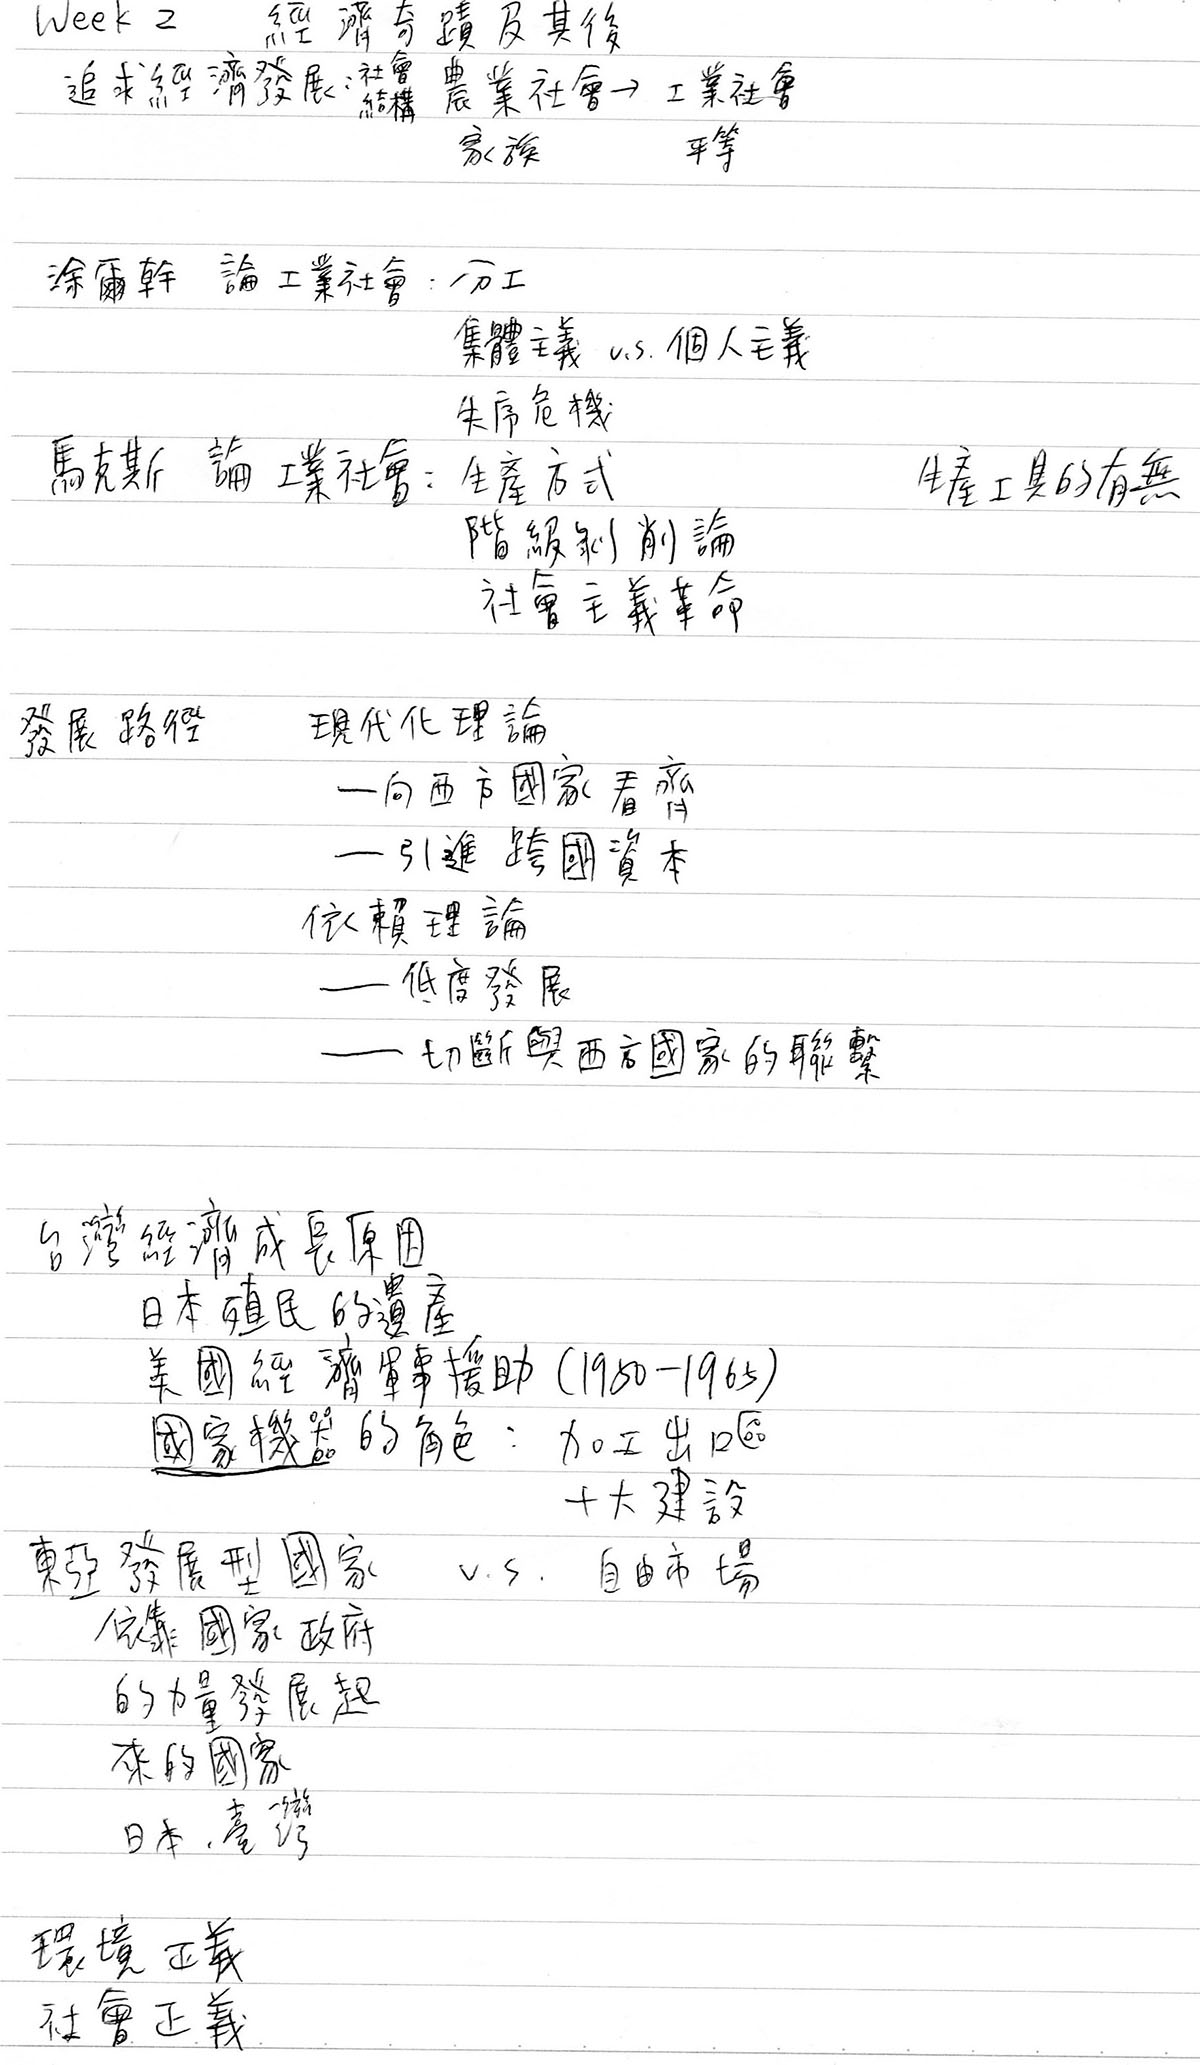 Week 2 經濟奇蹟及其後
追求經濟發展:社會結構 農業社會→工業社會
家族 平等
涂爾幹 論工業社會:分工
集體主義 v.s. 個人主義
失序危機
馬克斯 論工業社會:生產方式 生產工具的有無
階級剝削論
社會主義革命
發展路徑 現代化理論
—向西方國家看齊
—引進跨國資本
依賴理論
—低度發展
—切斷與西方國家的聯繫
台灣經濟成長原因
日本殖民的遺產
美國經濟軍事援助(1950-1965)
國家機器的角色:加工出口區
十大建設
東亞發展型國家 v.s. 自由市場
依靠國家政府
的力量發展起
來的國家
日本、臺灣
環境正義
社會正義